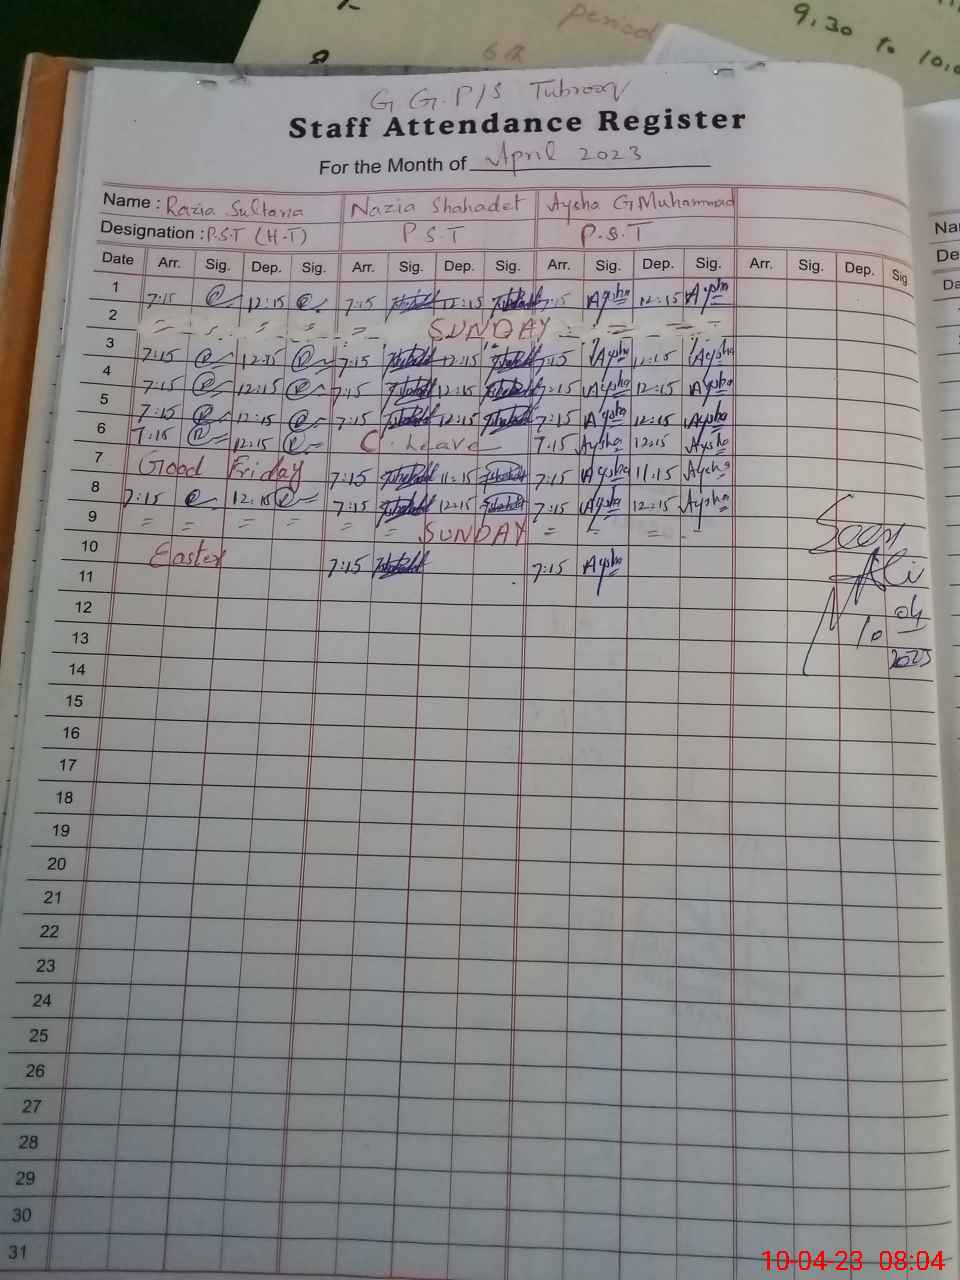 period
9.30 to 10.0
6th
G G.P/S Tubrooq
Staff Attendance Register
For the Month of April 2023
Name : Razia Sultana Nazia Shahadet Aysha G Muhammad
Designation : P.S.T (H.T) P S.T P.S.T
Date Arr. Sig. Dep. Sig. Arr. Sig. Dep. Sig. Arr. Sig. Dep. Sig. Arr. Sig. Dep. Sig
1 7:15 12:15 7:15 12:15 7:15 Aysha 12:15 Aysha
2 = = = = = SUNDAY = = = =
3 7:15 12:15 7:15 12:15 7:15 Aysha 12:15 Aysha
4 7:15 12:15 7:15 12:15 7:15 Aysha 12:15 Aysha
5 7:15 12:15 7:15 12:15 7:15 Aysha 12:15 Aysha
6 7:15 12:15 C. Leave 7:15 Aysha 12:15 Aysha
7 Good Friday 7:15 11:15 7:15 Aysha 11:15 Aysha
8 7:15 12:15 7:15 12:15 7:15 Aysha 12:15 Aysha
9 = = = = = = SUNDAY = = = -
10 Easter 7:15 7:15 Aysha
11
12
13
14
15
16
17
18
19
20
21
22
23
24
25
26
27
28
29
30
31
Seen
Ali
10 04
2023
Na
De
Da
10-04-23 08:04